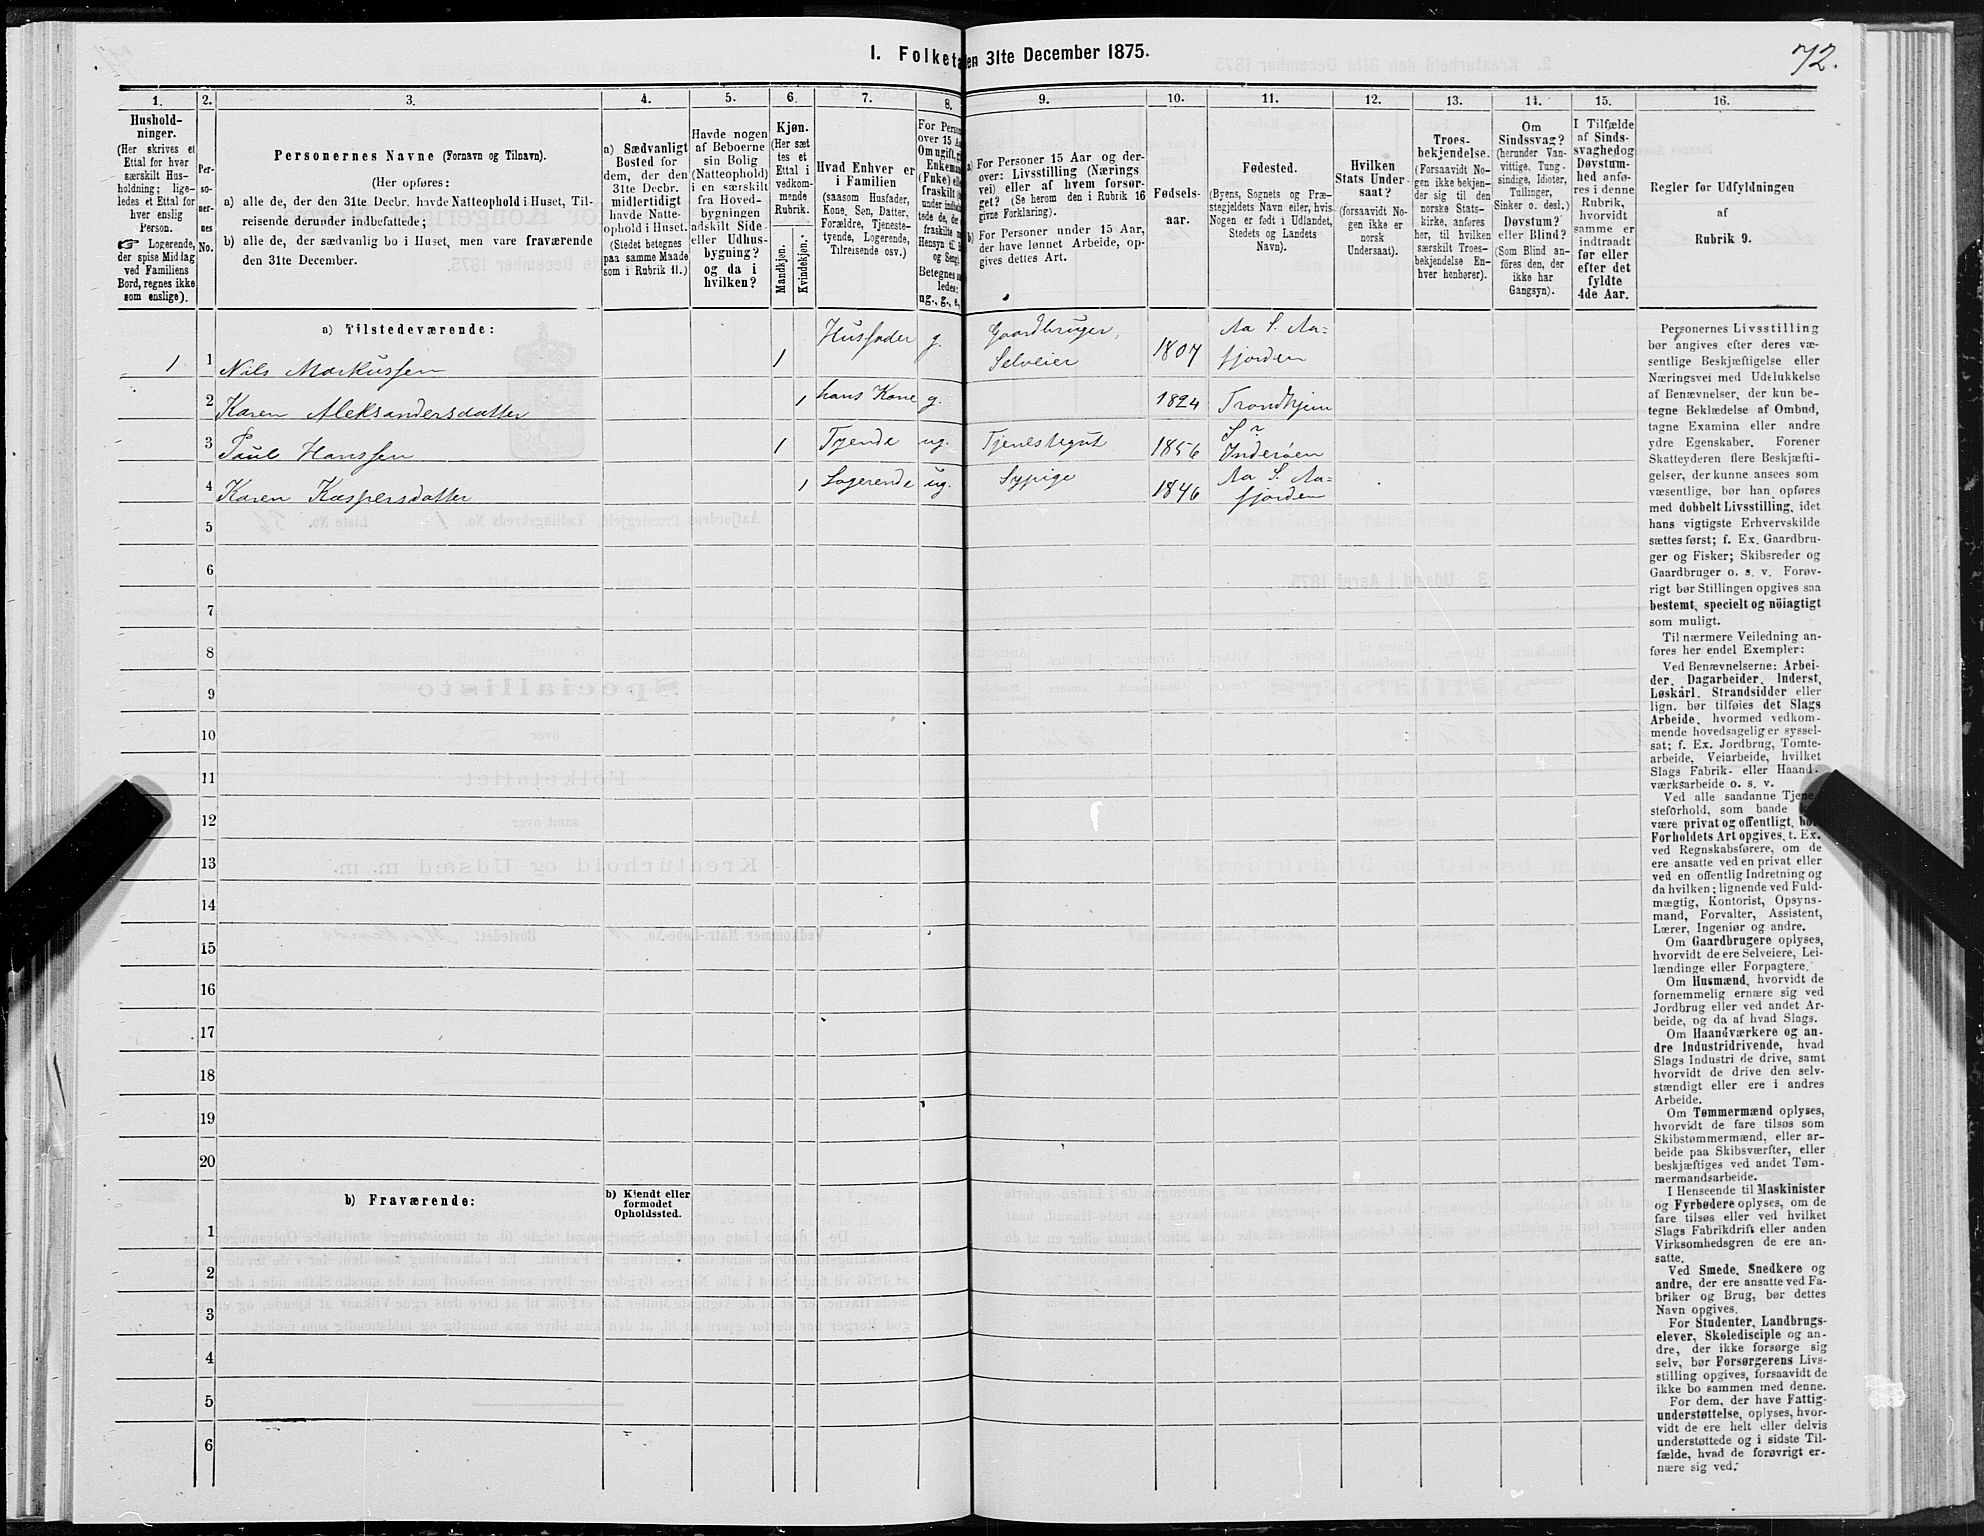 72.
I. Folketa en 31te December 1875.
1.
Hushold-
ninger.
(Her skrives et
Ettal for hver
særskilt Hus-
holdning; lige-
ledes et Ettal for
hver enslig
Person.
☞ Logerende,
der spise Middag
ved Familiens
Bord, regnes ikke
som enslige).
2.
Per-
so-
ner-
nes
No.
3.
Personernes Navne (Fornavn og Tilnavn).
(Her opføres:
a) alle de, der den 31te Decbr. havde Natteophold i Huset, Til-
reisende derunder indbefattede;
b) alle de, der sædvanlig bo i Huset, men vare fraværende
den 31te December.
4.
a) Sædvanligt
Bosted for
dem, der den
31te Decbr.
midlertidigt
havde Natte-
ophold i Huset.
(Stedet betegnes
paa samme Maade
som i Rubrik 11.)
5.
Havde nogen
af Beboerne
sin Bolig
(Natteophold)
i en særskilt
fra Hoved-
bygningen
adskilt Side-
eller Udhus-
bygning?
og da i
hvilken?
6.
Kjøn.
(Her sæt
tes et
Ettal i
vedkom-
mende
Rubrik.
Mandkjøn.
Kvindekjøn.
7.
Hvad Enhver er
i Familien
(saasom Husfader,
Kone, Søn, Datter,
Forældre, Tjeneste-
tyende, Logerende,
Tilreisende osv.)
8.
For Perso
over 15 Aa
Om ugift, g
Enkeman
(Enke) elle
fraskilt (
under indbe
tede de, de
fraskilte
Hensyn til
og Seng).
Betegnes s
ledes:
ug., g., e.,
9.
a) For Personer 15 Aar og der-
over: Livsstilling (Nærings
vei) eller af hvem forsør-
get? (Se herom den i Rubrik 16
givne Forklaring).
b) For Personer under 15 Aar,
der have lønnet Arbeide, op-
gives dettes Art.
10.
Fødsels-
aar.
11.
Fødested.
(Byens, Sognets og Præ-
stegjeldets Navn eller, hvis
Nogen er født i Udlandet,
Stedets og Landets
Navn).
12.
Hvilken
Stats Under-
saat?
(forsaavidt No-
gen ikke er
norsk
Undersaat).
13.
Troes-
bekjendelse.
(Forsaavidt No-
gen ikke bekjen-
der sig til den
norske Stats-
kirke, anføres
her, til hvilken
særskilt Troes-
bekjendelse En-
hver henhører).
14.
Om
Sindssvag?
(herunder Van-
vittige, Tung-
sindige, Idioter,
Tullinger,
Sinker o. desl.)
Døvstum?
eller Blind?
(Som Blind an-
føres den, der
ikke har
Gangsyn).
15.
I Tilfælde
af Sinds-
svaghed og
Døvstum-
hed anfø-
res i denne
Rubrik,
hvorvidt
samme er
indtraadt
før eller
efter det
fyldte
4de Aar.
16.
Regler for Udfyldningen
af
Rubrik 9.
a) Tilstedeværende:
1 1 Nils Markussen 1 Husfader g. Gaardbruger, Selveier 1807 Aa S. Aa=
fjorden
2 Karen Aleksandersdatter 1 hans Kone g. 1824 Trondhjem
3 Paul Hanssen 1 Tyende ug. Tjenestegut 1856 S?
Inderøen
4 Karen Kaspersdatter 1 Logerende ug. Sypige 1846 Aa S. Aa=
fjorden
5
6
7
8
9
10
11
12
13
14
15
16
17
18
19
20
b) Fraværende:
b) Kjendt eller
formodet
Opholdssted.
1
2
3
4
5
6
Personernes Livsstilling
bør angives efter deres væ-
sentlige Beskjæftigelse eller
Næringsvei med Udelukkelse
af Benævnelser, der kun be-
tegne Beklædelse af Ombud,
tagne Examina eller andre
ydre Egenskaber. Forener
Skatteyderen flere Beskjæfti-
gelser, der kunne ansees som
væsentlige, bør han opføres
med dobbelt Livsstilling, idet
hans vigtigste Erhvervskilde
sættes først; f. Ex. Gaardbru-
ger og Fisker; Skibsreder og
Gaardbruger o. s. v. Forøv-
rigt bør Stillingen opgives saa
bestemt, specielt og nöiagtigt
som muligt.
Til nærmere Veiledning an-
føres her endel Exempler:
Ved Benævnelserne: Arbei-
der, Dagarbeider, Inderst,
Løskarl, Strandsidder eller
lign. bør tilføies det Slags
Arbeide, hvormed vedkom-
mende hovedsagelig er syssel-
sat; f. Ex. Jordbrug, Tomte-
arbeide, Veiarbeide, hvilket
Slags Fabrik- eller Haand-
værksarbeide o. s. v.
Ved alle saadanne Tjene-
steforhold, som baade
være privat og offentligt, bør
Forholdets Art opgives, t. Ex.
ved Regnskabsførere, om de
ere ansatte ved en privat eller
ved en offentlig Indretning og
da hvilken; lignende ved Fuld-
mægtig, Kontorist, Opsyns-
mand, Forvalter, Assistent,
Lærer, Ingeniør og andre.
Om Gaardbrugere oplyses,
hvorvidt de ere Selveiere, Lei-
lændinge eller Forpagtere.
Om Husmænd, hvorvidt de
fornemmelig ernære sig ved
Jordbrug eller ved andet Ar-
beide, og da af hvad Slags.
Om Haandværkere og an-
dre Industridrivende, hvad
Slags Industri de drive, samt
hvorvidt de drive den selv-
stændigt eller ere i andres
Arbeide.
Om Tømmermænd oplyses,
hvorvidt de fare tilsøs som
Skibstømmermænd, eller ar-
beide paa Skibsværfter, eller
beskjæftiges ved andet Tøm-
mermandsarbeide.
I Henseende til Maskinister
og Fyrbødere oplyses, om de
fare tilsøs eller ved hvilket
Slags Fabrikdrift eller anden
Virksomhedsgren de ere an-
satte.
Ved Smede, Snedkere og
andre, der ere ansatte ved Fa-
briker og Brug, bør dettes
Navn opgives.
For Studenter, Landbrugs-
elever, Skoledisciple og an-
dre, der ikke forsørge sig
selv, bør Forsørgerens Livs-
stilling opgives, forsaavidt de
ikke bo sammen med denne.
For dem, der have Fattig-
understøttelse, oplyses, hvor-
vidt de ere helt eller delvis
understøttede og i sidste Til-
fælde, hvad de forøvrigt er-
nære sig ved.